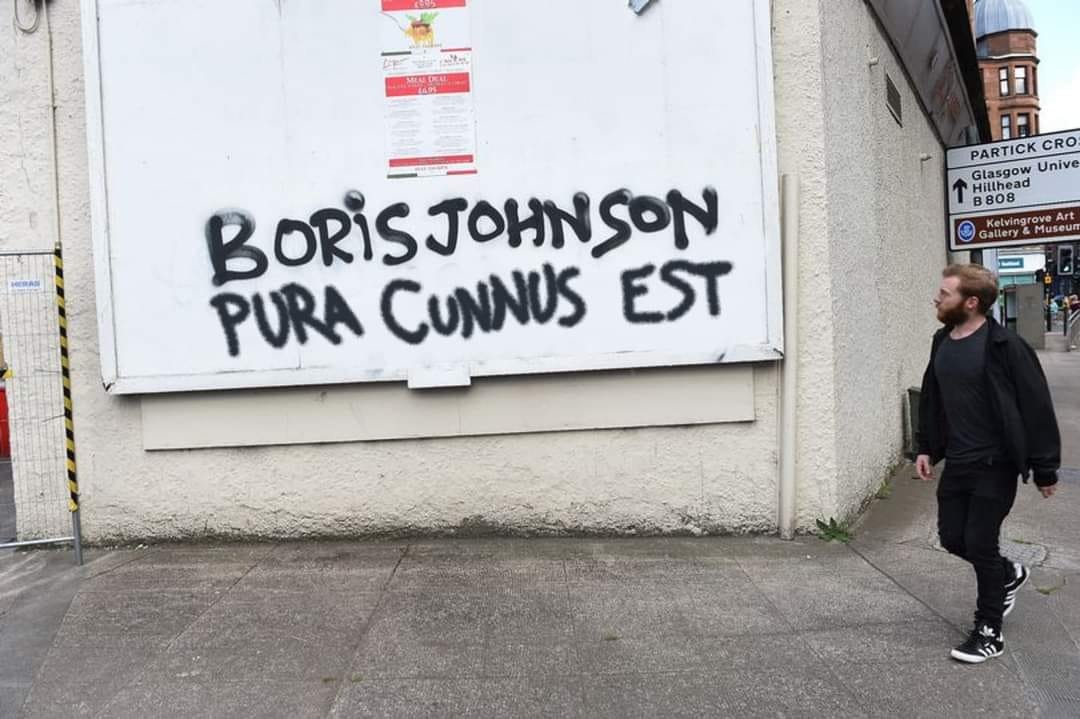 £9.95
MEAL DEAL
£6.95
BORIS JOHNSON
PURA CUNNUS EST
HERAS
PARTICK CRO
Glasgow Unive
Hillhead
B808
Kelvingrove Art
Gallery & Museum